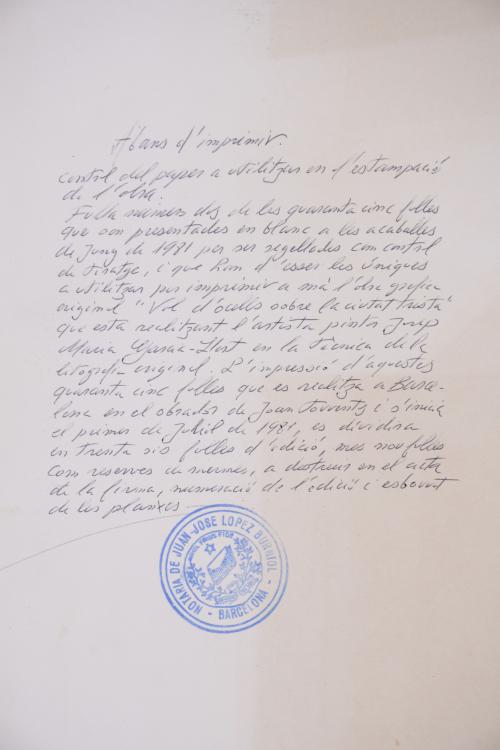 Abans d'imprimir.
Control del paper a utilitzar en l'estampació
de l'obra.
Fulla número dos de les quaranta cinc fulles
que son presentades en blanc a les acaballes
de Juny de 1981 per ser segellades com control
de tiratge, i que han d'esser les úniques
a utilitzar per imprimir a mà l'obra gràfica
original "Vol d'ocells sobre la ciutat trista"
que està realitzant l'artista pintor Josep
Maria Garcia-Llort en la tècnica de la
litografia original. L'impressió d'aquestes
quaranta cinc fulles que es realitzà a Barce-
lona en el obrador de Joan Torrents i s'inicià
el primer de Juliol de 1981, es dividira
en trenta sis fulles d'edició, mes nou fulles
com reserves de mermes, a destruir en el acte
de la firma, numeració de l'edició i esborrat
de les planxes.
NOTARIA DE JUAN-JOSE LOPEZ BURNIOL
- BARCELONA -